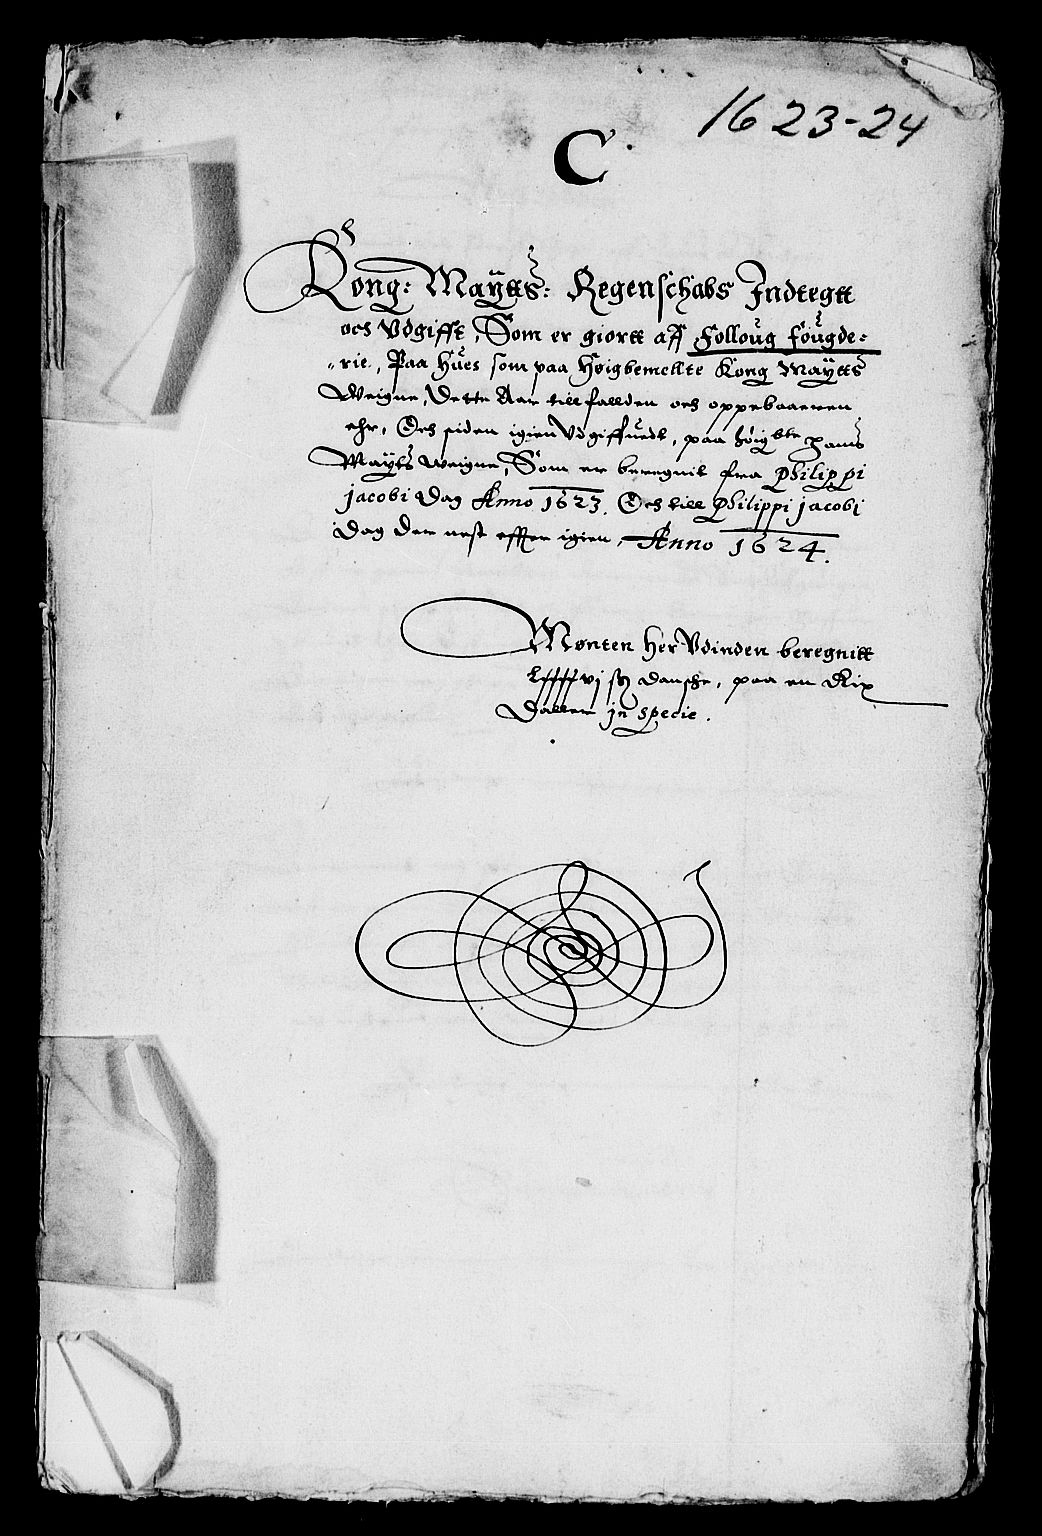 1623-24
C.
Kong: Maÿtts: Regenschabs Indtegtt
och Vdgifft, Som er giortt aff Folloug fougde=
rie, Paa hues som paa Høigbemellte Kong Maÿtts
Weigne, Dette Aar till fallden och oppebaaeren
ehr, Och siden igien Vdgiffuedt, paa høigbte hans
Maÿts Weigne, Som er beregnit fra Philippi
jacobi Dag Anno 1623. Och till Philippi jacobi
Dag der nest effter igien, Anno 1624.
Mønten her Vdinden beregnitt
vj danske, paa en Rix
Daller jn specie.